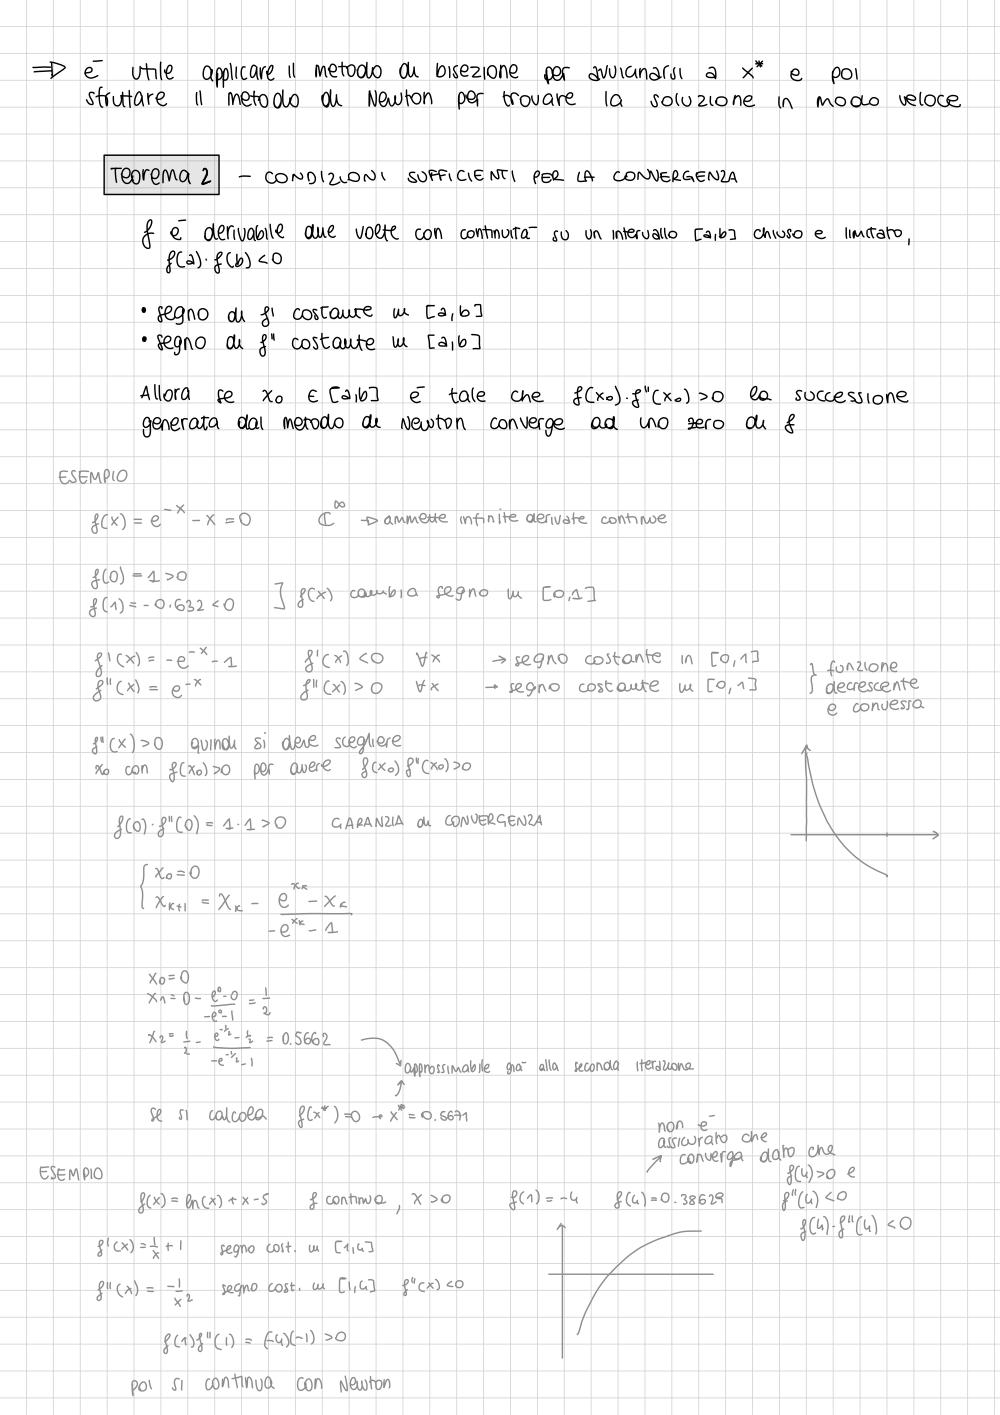 ⇒ è utile applicare il metodo di bisezione per avvicinarsi a x* e poi
sfruttare il metodo di Newton per trovare la soluzione in modo veloce
Teorema 2 - CONDIZIONI SUFFICIENTI PER LA CONVERGENZA
f è derivabile due volte con continuità su un intervallo [a,b] chiuso e limitato,
f(a)·f(b)<0
• segno di f' costante in [a,b]
• segno di f" costante in [a,b]
Allora se x₀ ∈ [a,b] è tale che f(x₀)·f"(x₀)>0 la successione
generata dal metodo di Newton converge ad uno zero di f
ESEMPIO
f(x) = e^-x - x = 0 C^∞ → ammette infinite derivate continue
f(0) = 1 >0
f(1) = -0.632 <0 ] f(x) cambia segno in [0,1]
f'(x) = -e^-x - 1 f'(x) <0 ∀x → segno costante in [0,1]
f"(x) = e^-x f"(x) > 0 ∀x → segno costante in [0,1]
} funzione
decrescente
e convessa
f"(x) >0 quindi si deve scegliere
x₀ con f(x₀)>0 per avere f(x₀) f"(x₀)>0
f(0)·f"(0) = 1·1 >0 GARANZIA di CONVERGENZA
{ x₀ = 0
x_k+1 = x_k - (e^x_k - x_k)/(-e^x_k - 1)
x₀ = 0
x₁ = 0 - (e⁰-0)/(-e⁰-1) = 1/2
x₂ = 1/2 - (e^-1/2 - 1/2)/(-e^-1/2 - 1) = 0.5662
approssimabile già alla seconda iterazione
se si calcola f(x*)=0 → x* = 0.5671
non è
assicurato che
converga dato che
f(4)>0 e
f"(4) <0
f(4)·f"(4) <0
ESEMPIO
f(x) = ln(x) + x - 5 f continua, x >0 f(1) = -4 f(4) = 0.38629
f'(x) = 1/x + 1 segno cost. in [1,4]
f"(x) = -1/x² segno cost. in [1,4] f"(x) <0
f(1)f"(1) = (-4)(-1) >0
poi si continua con Newton